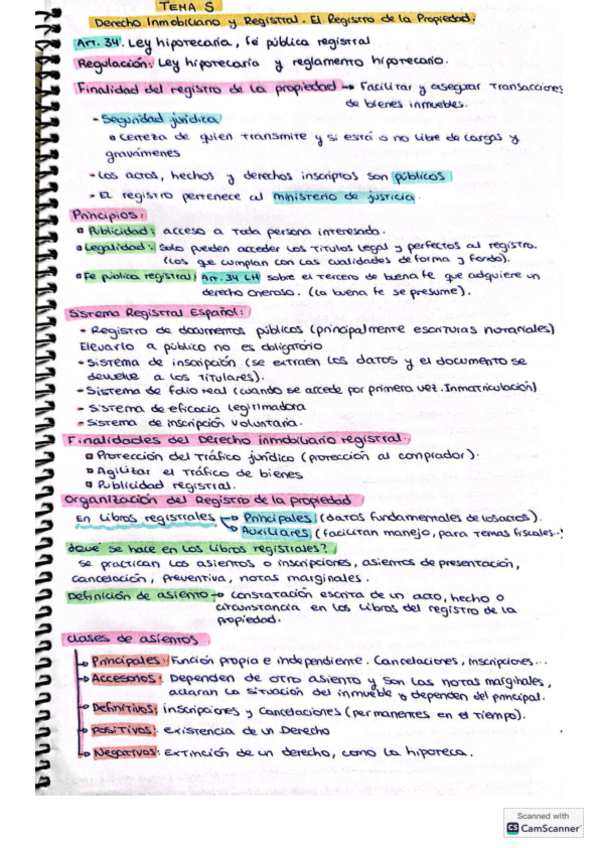 TEMA 5
Derecho Inmobiliario y Registral. El Registro de la Propiedad.
Art. 34. Ley hipotecaria, fé pública registral
Regulación: Ley hipotecaria y reglamento hipotecario.
Finalidad del registro de la propiedad → Facilitar y asegurar transacciones
de bienes inmuebles.
- Seguridad jurídica
Certeza de quien transmite y si está o no libre de cargas y
gravámenes
- Los actos, hechos y derechos inscriptos son públicos
- El registro pertenece al ministerio de justicia.
Principios:
Publicidad: acceso a toda persona interesada.
Legalidad: Solo pueden acceder los titulos legal y perfectos al registro.
(Los que cumplan con las cualidades de forma y fondo).
Fe pública registral: Art. 34 LH sobre el tercero de buena fe que adquiere un
derecho oneroso. (La buena fe se presume).
Sistema Registral Español:
- Registro de documentos públicos (principalmente escrituras notariales)
Elevarlo a público no es obligatorio
- Sistema de inscripción (se extraen los datos y el documento se
devuelve a los titulares).
- Sistema de folio real (cuando se accede por primera vez. Inmatriculación)
- Sistema de eficacia legitimadora
- Sistema de inscripción voluntaria.
Finalidades del Derecho inmobiliario registral.
Protección del Tráfico jurídico (protección al comprador).
Agilitar el tráfico de bienes
Publicidad registral.
Organización del Registro de la propiedad
En Libros registrales → Principales: (datos fundamentales de los actos).
Auxiliares: (facilitan manejo, para temas fiscales..)
¿Qué se hace en los Libros registrales?
Se practican los asientos o inscripciones, asientos de presentación,
cancelación, preventiva, notas marginales.
Definición de asiento → constatación escrita de un acto, hecho o
circunstancia en los libros del registro de la
propiedad.
Clases de asientos
Principales: Función propia e independiente. Cancelaciones, inscripciones...
Accesorios: Dependen de otro asiento y son las notas marginales,
aclaran la situación del inmueble o dependen del principal.
Definitivos: inscripciones y cancelaciones (permanentes en el tiempo).
Positivos: existencia de un Derecho
Negativos: Extinción de un derecho, como la hipoteca.
Scanned with
CS CamScanner